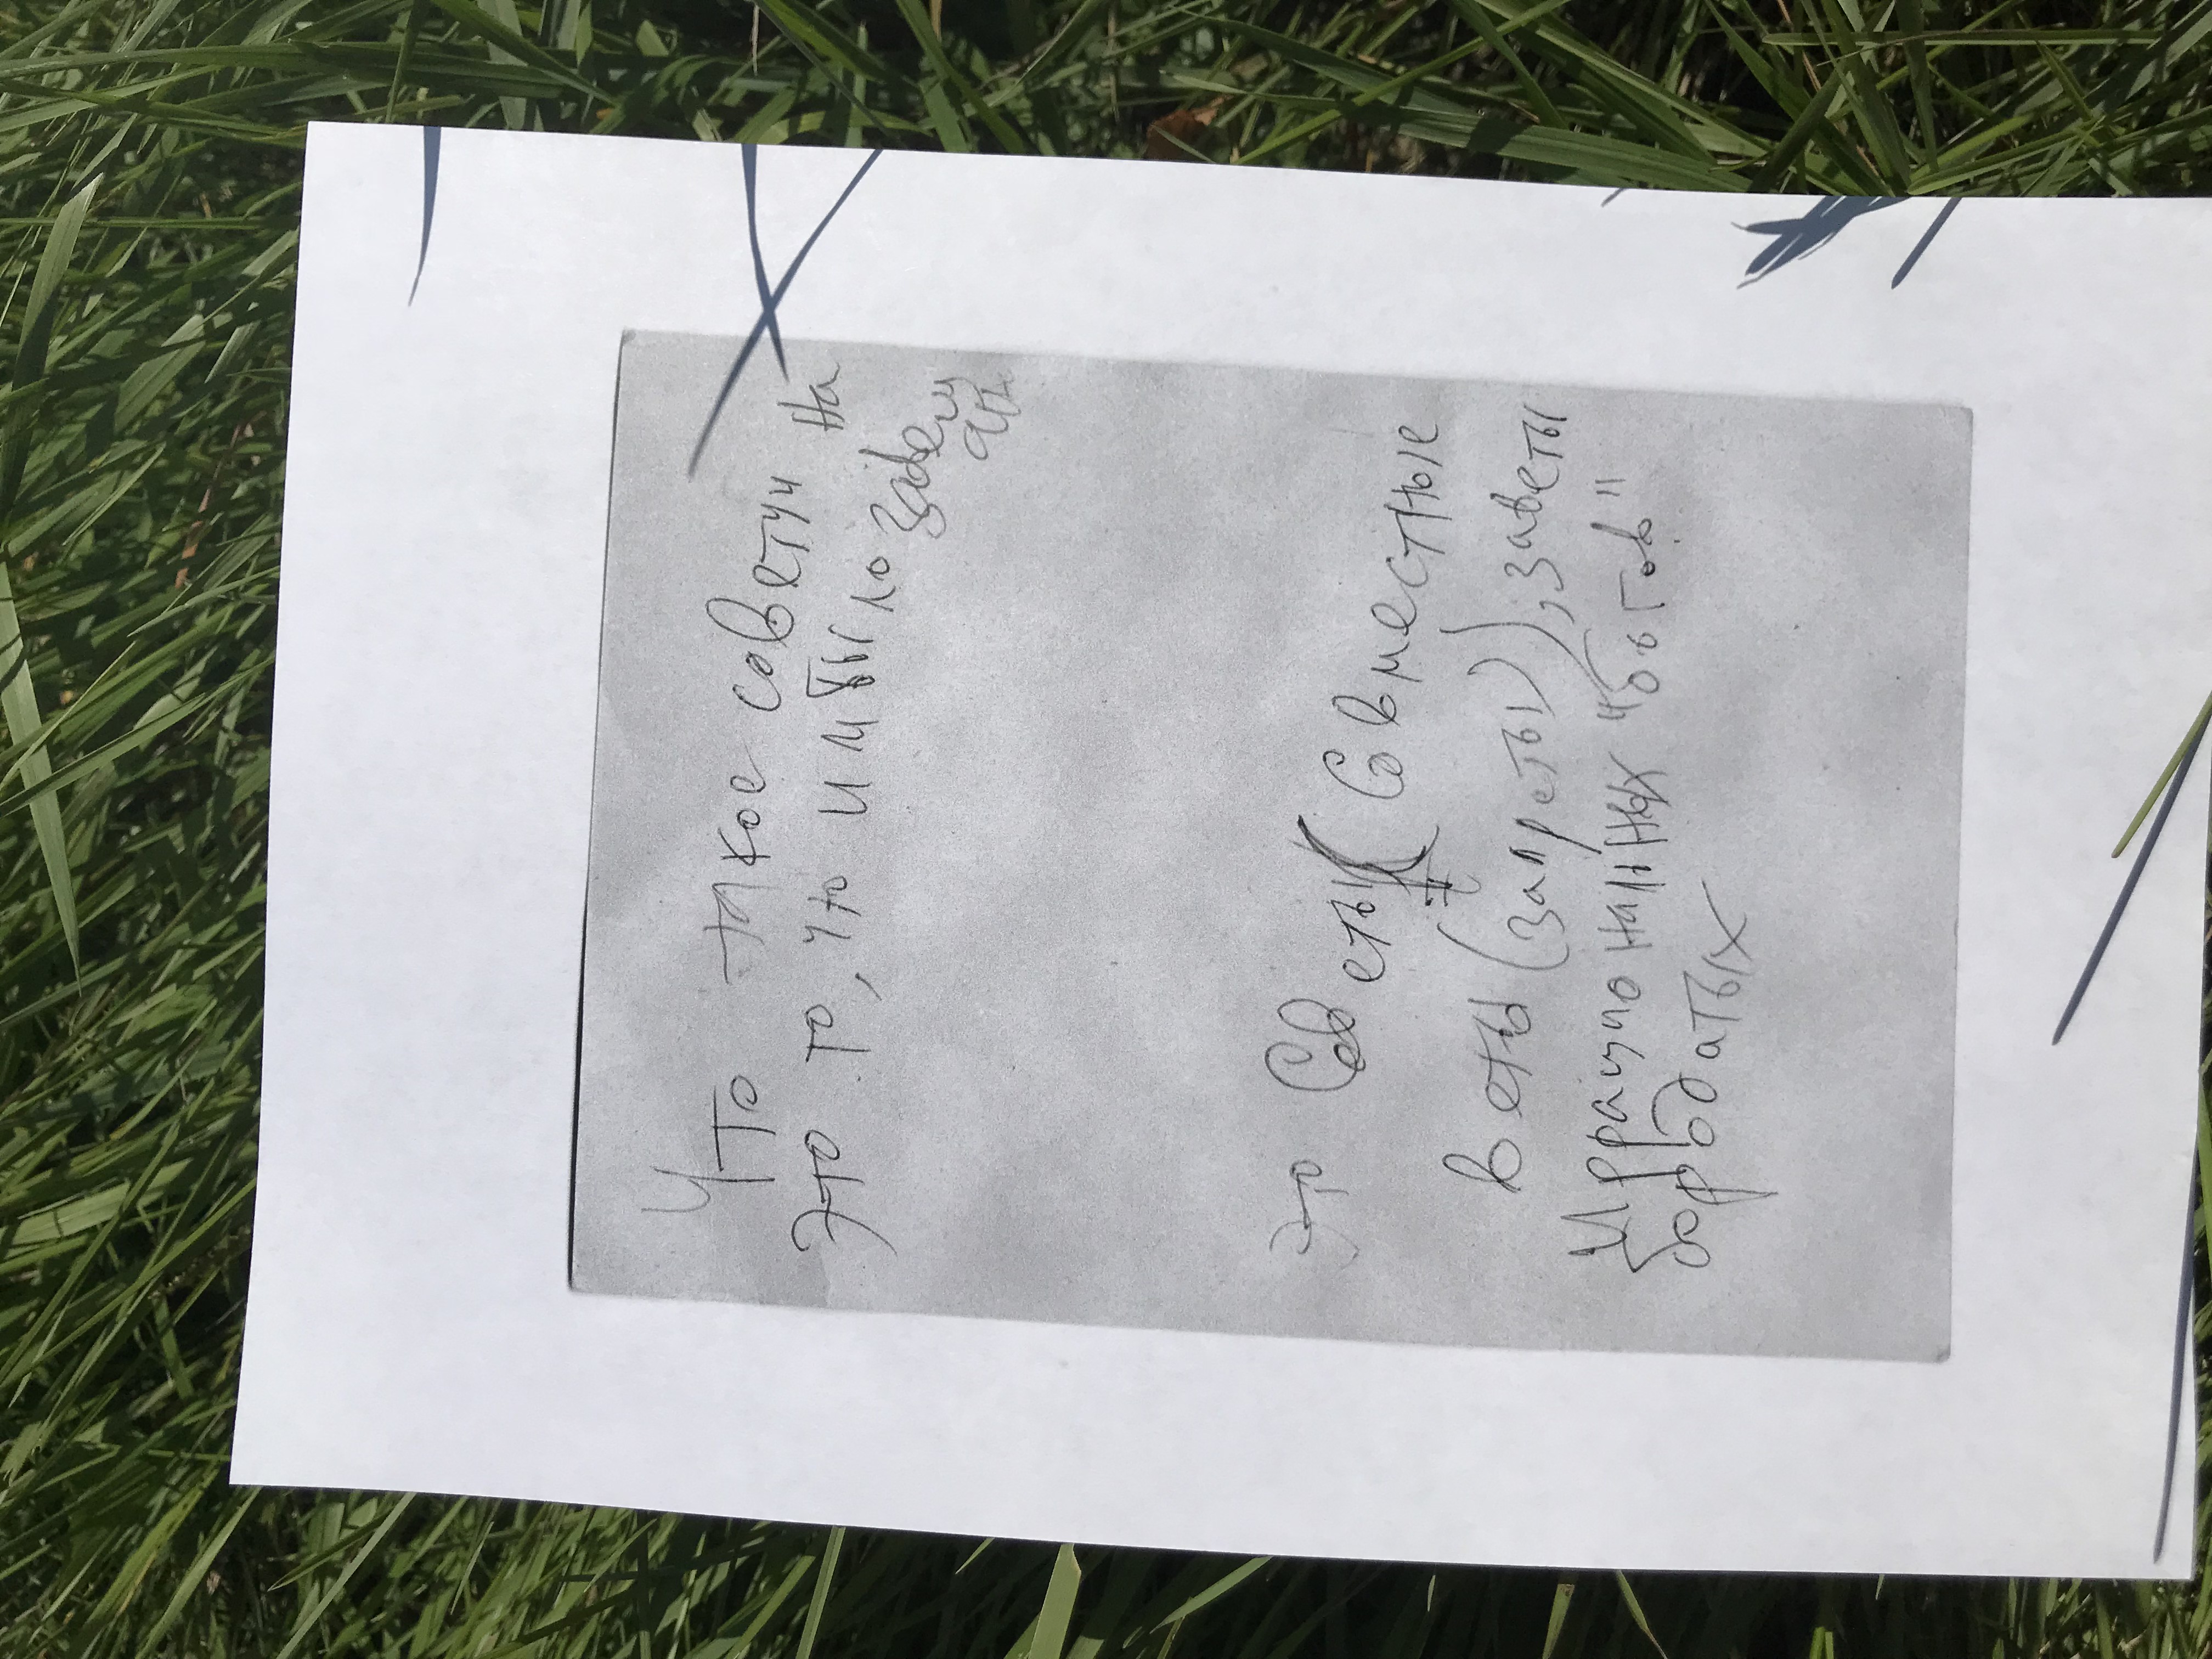 Что такое советчи на
Это то, что им было завещ
ан
Это Советы (Совместные
веты (запреты)), заветы
Иррациональных "богов"
бородатых